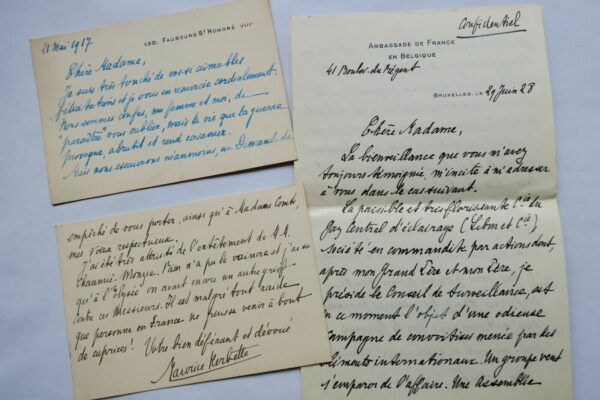 150, Faubourg St Honoré VIIIe
21 Mai 1917
Chère Madame,
Je suis très touché de vos si aimables
félicitations et je vous en remercie cordialement.
Nous sommes confus, ma femme et moi, de
"paraître" vous oublier, mais la vie que la guerre
provoque, abrutit et rend casanier.
Mais nous essuierons néanmoins, un Dimanche de
empêché de vous porter, ainsi qu'à Madame Comte,
mes vœux respectueux.
J'ai été très attristé de l'entêtement de M.M.
Chaumié, Monzie. Rien n'a pu le vaincre et j'ai su
qu'à l'Elysée on avait encore un autre grief
contre ces Messieurs. Il est malgré tout raide
que personne en France ne puisse venir à bout
de caprices! Votre bien déférant et dévoué
Maurice Herbette
Confidentiel
Ambassade de France
en Belgique
41 Boulev. du Régent
Bruxelles, le 29 Juin 28
Chère Madame,
La bienveillance que vous m'avez
toujours témoignée, m'incite à m'adresser
à vous dans le cas suivant.
La paisible et très florissante Cie du
Gaz Central d'éclairage (Lebon et Cie)
Société en commandite par actions dont,
après mon Grand Père et mon Père, je
préside le Conseil de Surveillance, est
en ce moment l'objet d'une odieuse
campagne de convoitises menée par des
éléments internationaux. Un groupe veut
s'emparer de l'affaire. Une Assemblée